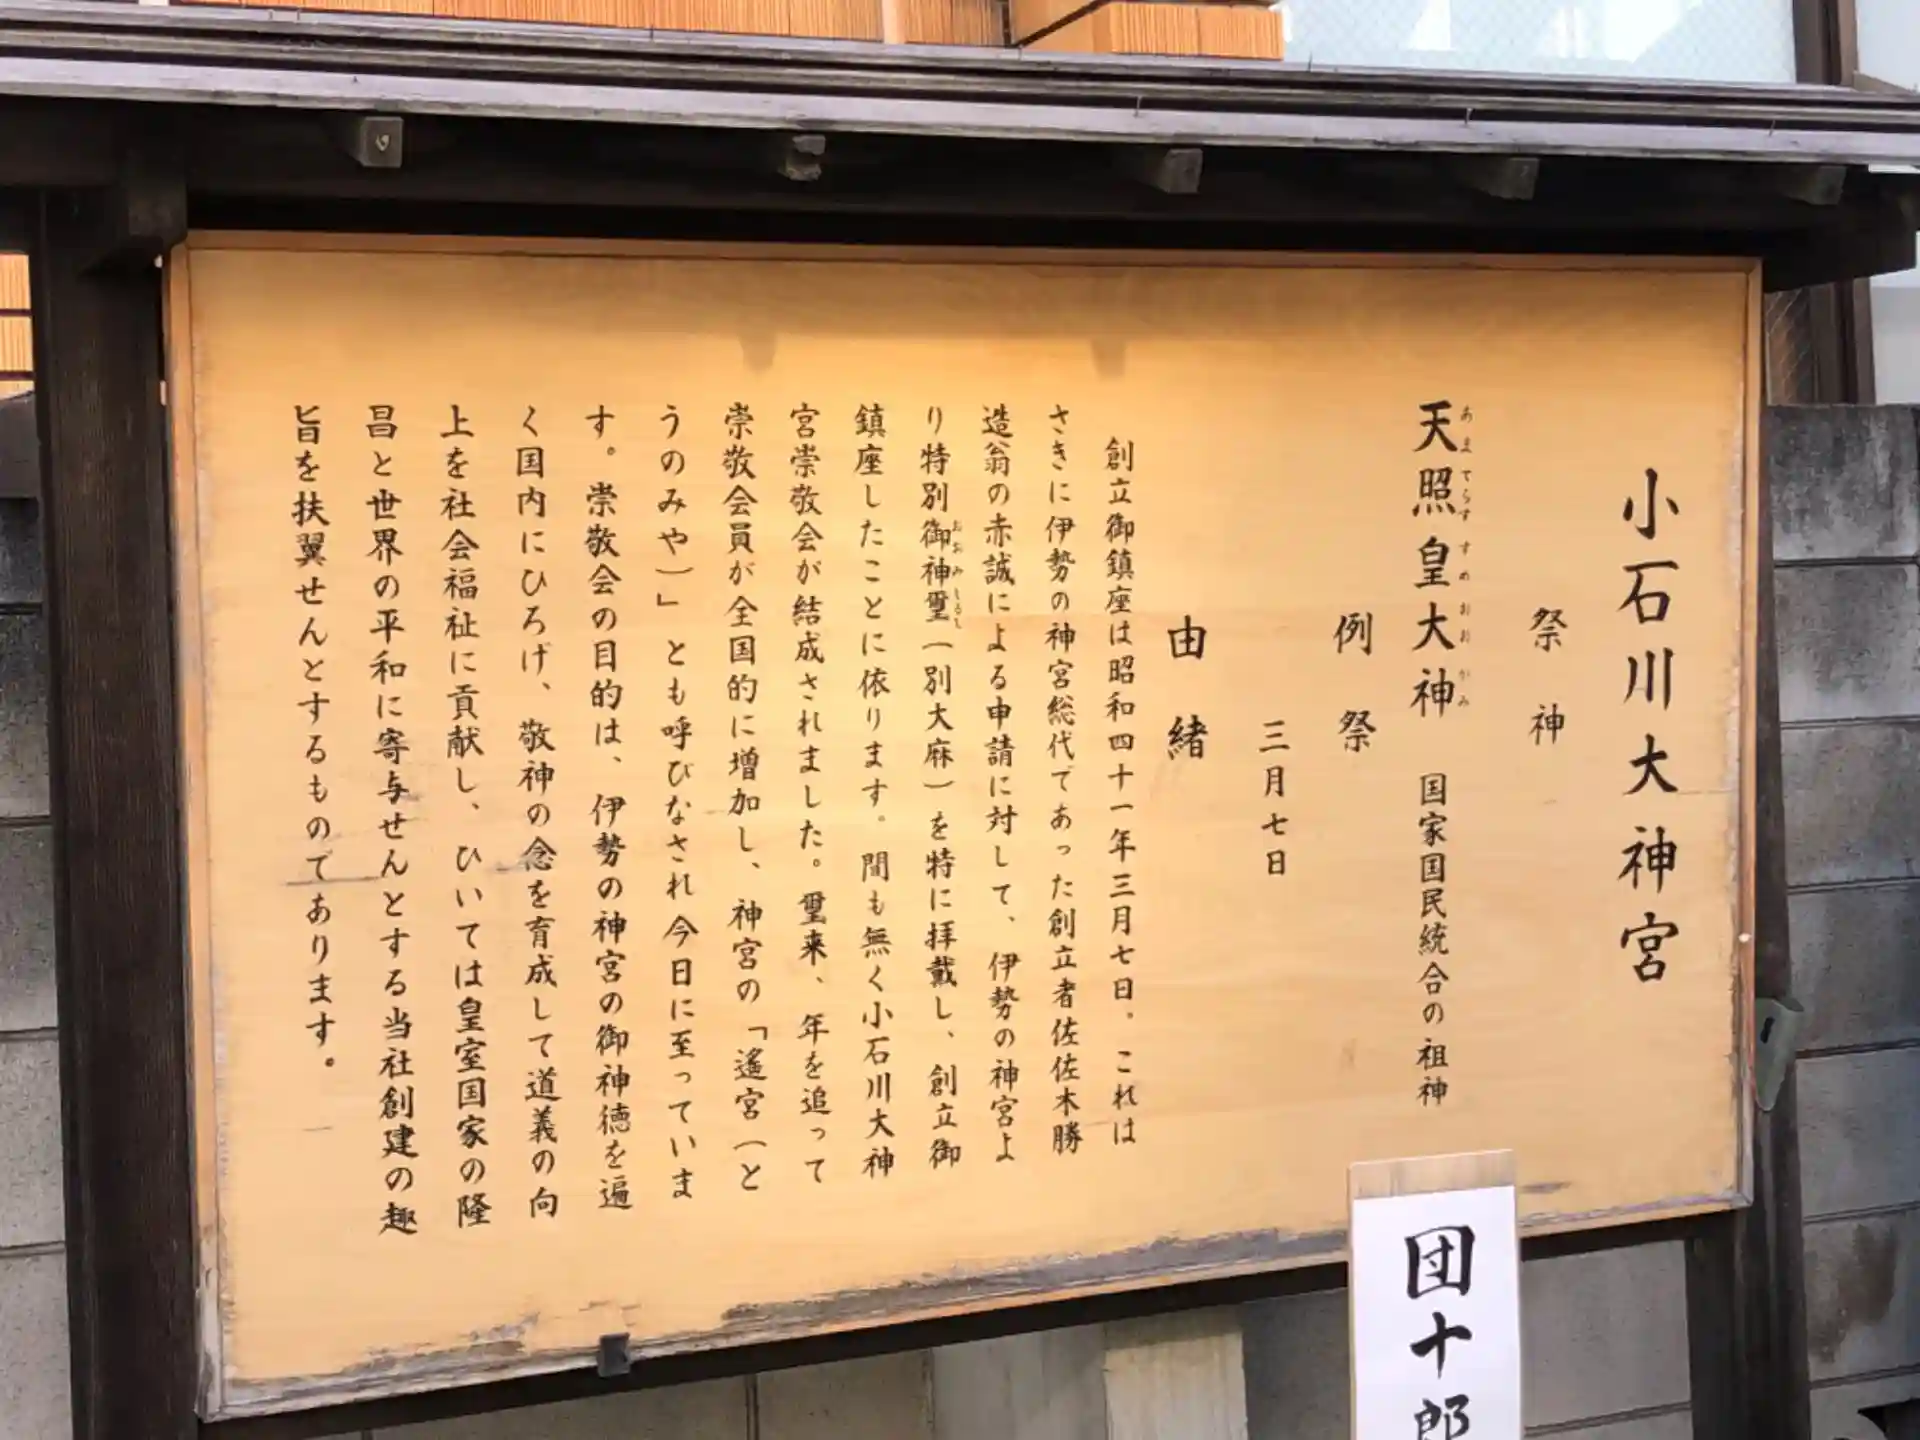 小石川大神宮
祭神
天照皇大神 国家国民統合の祖神
あまてらすすめおおかみ
例祭
三月七日
由緒
創立御鎮座は昭和四十一年三月七日。これは
さきに伊勢の神宮総代であった創立者佐佐木勝
造翁の赤誠による申請に対して、伊勢の神宮よ
り特別御神璽(別大麻)を特に拝戴し、創立御
おおみしるし
鎮座したことに依ります。間も無く小石川大神
宮崇敬会が結成されました。璽来、年を追って
崇敬会員が全国的に増加し、神宮の「遙宮(と
うのみや)」とも呼びなされ今日に至っていま
す。崇敬会の目的は、伊勢の神宮の御神徳を遍
く国内にひろげ、敬神の念を育成して道義の向
上を社会福祉に貢献し、ひいては皇室国家の隆
昌と世界の平和に寄与せんとする当社創建の趣
旨を扶翼せんとするものであります。
団十郎